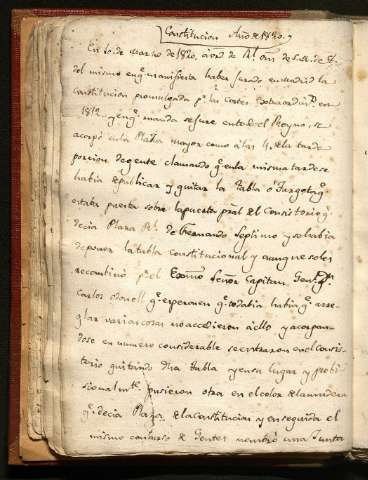 Constitucion Año de 1820.
En 10. de marzo de 1820, a vrd de Rl orn de
del mismo en q. manifiesta haber jurado en madrid la
constitucion promulgada pr las cortes Extraordins. en
1812 y en q. manda se jure en todo el Reyno, se
acorpó en la Plaza mayor como a las 4 de la tarde
porcion de gente clamando q. en la misma tarde se
habia de publicar y quitar la Tabla o Targeta q.
estaba puesta sobre la puerta pral del Consistorio q.
decia Plaza Rl de Fernando Septimo y se habia
de poner la tabla constitucional y aunque se les
recombino pr el Exmo Señor Capitan Genl Dn
Carlos Odonell q. esperasen q. todabia habia q. arre-
glar varias cosas no accedieron a ello y acorpan-
dose en numero considerable se entraron en el consis-
torio quitando dha tabla y en su lugar y probi-
sionalmte pusieron otra en el color de la madera
q. decia Plaza de la constitucion y en seguida el
mismo concurso de Gentes nembró una Junta